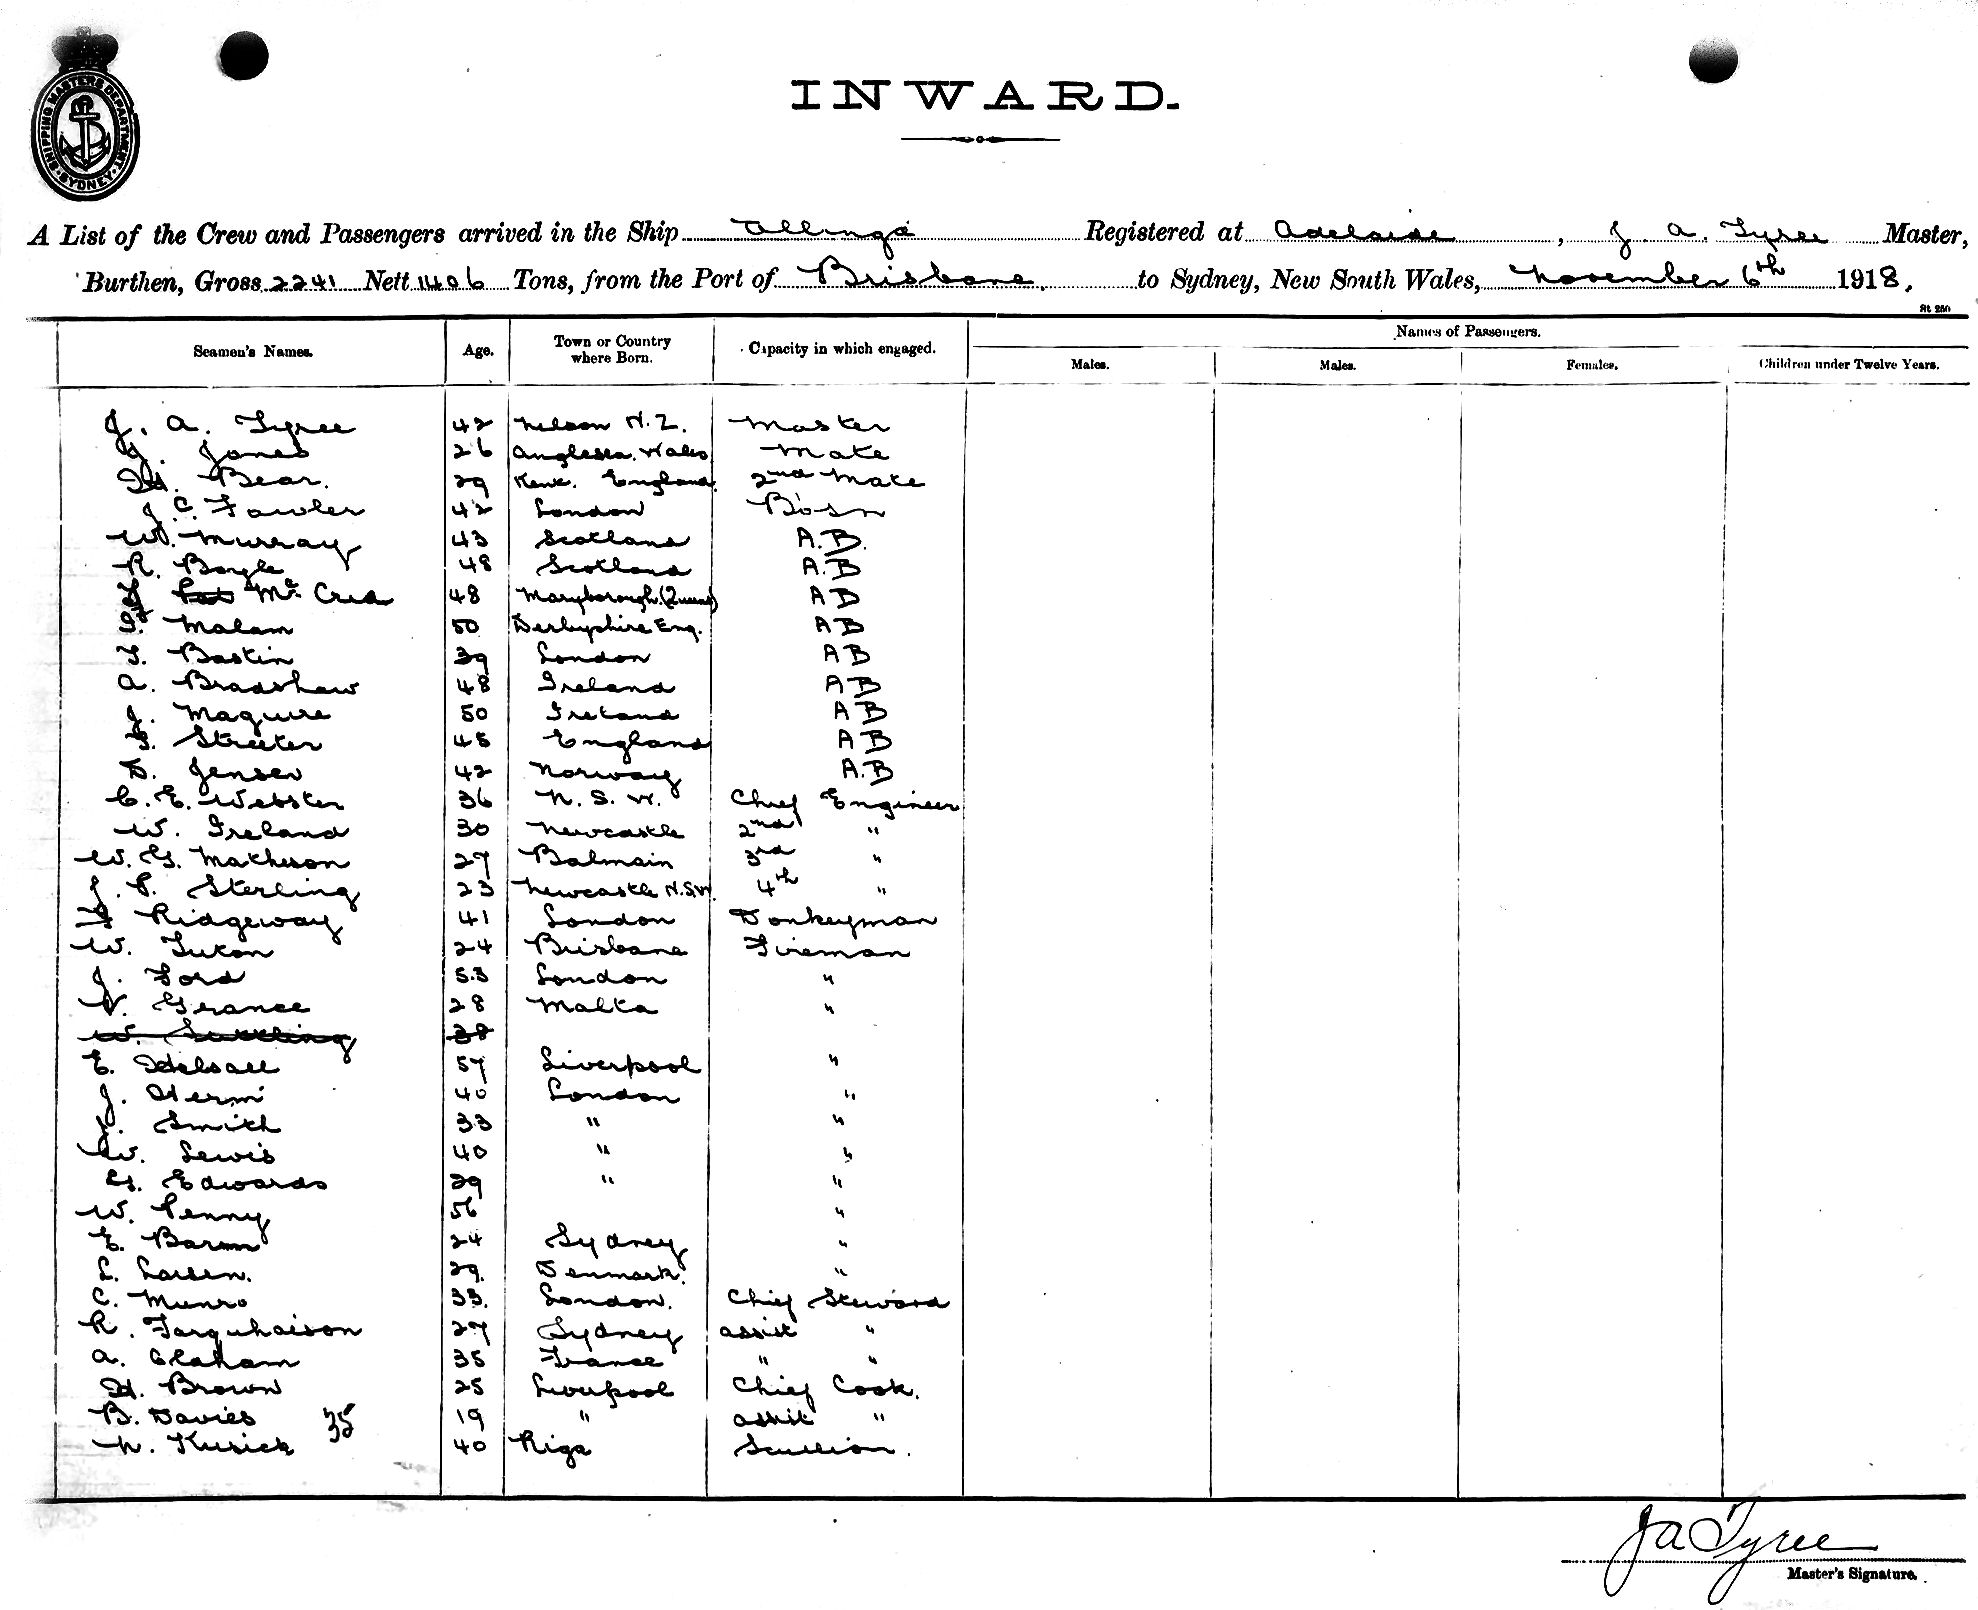 SHIPPING MASTERS DEPARTMENT SYDNEY
INWARD.
A List of the Crew and Passengers arrived in the Ship Allinga Registered at Adelaide, J. A. Tyree Master,
Burthen, Gross 2241 Nett 1406 Tons, from the Port of Brisbane. to Sydney, New South Wales, November 6th 1918.
St 250
Seamen's Names. Age. Town or Country where Born. Capacity in which engaged. Names of Passengers.
Males. Males. Females. Children under Twelve Years.
J. A. Tyree 42 Nelson N.Z. Master
J. Jones 26 Anglesea. Wales Mate
H. Bear. 29 Kent. England. 2nd Mate
J. C. Fowler 42 London Bosn
W. Murray 43 Scotland A.B.
R. Boyle 48 Scotland A.B
Mc Crea 48 Maryborough (Queens) A B
Malam 50 Derbyshire Eng. A B
T. Baskin 39 London A B
A. Bradshaw 48 Ireland A B
J. Maguire 50 Ireland A B
Streeter 45 England A B
D. Jensen 42 Norway A.B
C. E. Webster 36 N. S. W. Chief Engineer
W. Ireland 30 Newcastle 2nd "
W. G. Matheson 27 Balmain 3rd "
J. P. Sterling 23 Newcastle N.S.W. 4th "
Ridgeway 41 London Donkeyman
W. Tuton 24 Brisbane Fireman
J. Ford 53 London "
V. Grance 28 Malta "
W. Suttling 38
E. Halsall 57 Liverpool "
J. Herm 40 London "
J. Smith 33 " "
W. Lewis 40 " "
G. Edwards 29 " "
W. Penny 56 "
E. Baron 24 Sydney "
L. Larsen. 29. Denmark. "
C. Munro 33. London. Chief Steward
R. Farquhaison 27 Sydney assist "
A. Claham 35 France " "
H. Brown 25 Liverpool Chief Cook.
B. Davies 35 19 " assist "
N. Kusick 40 Riga Scullion.
J A Tyree
Master's Signature.